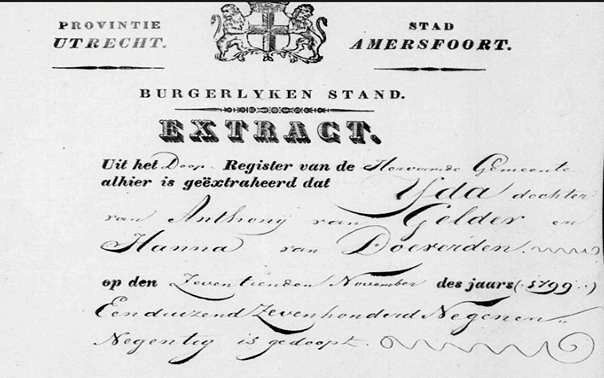 PROVINTIE
UTRECHT.
STAD
AMERSFOORT.
BURGERLYKEN STAND.
EXTRACT.
Uit het Doop Register van de Hervormde Gemeente
alhier is geëxtraheerd dat Yda dochter
van Anthony van Gelder en
Hanna van Doeverden.
op den Zeventienden November des jaars (1799.)
Eenduizend Zevenhonderd Negenen
Negentig is gedoopt.